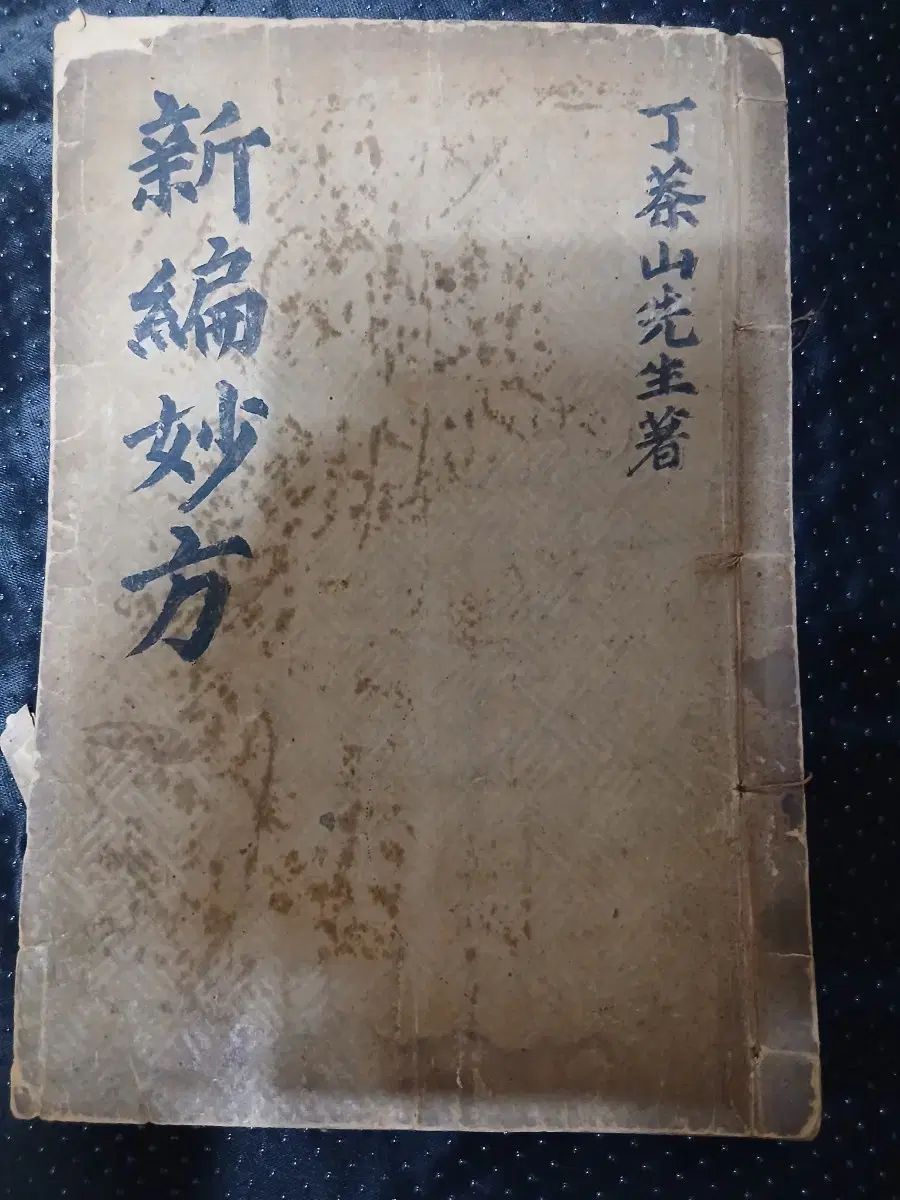 丁茶山先生著
新編妙方